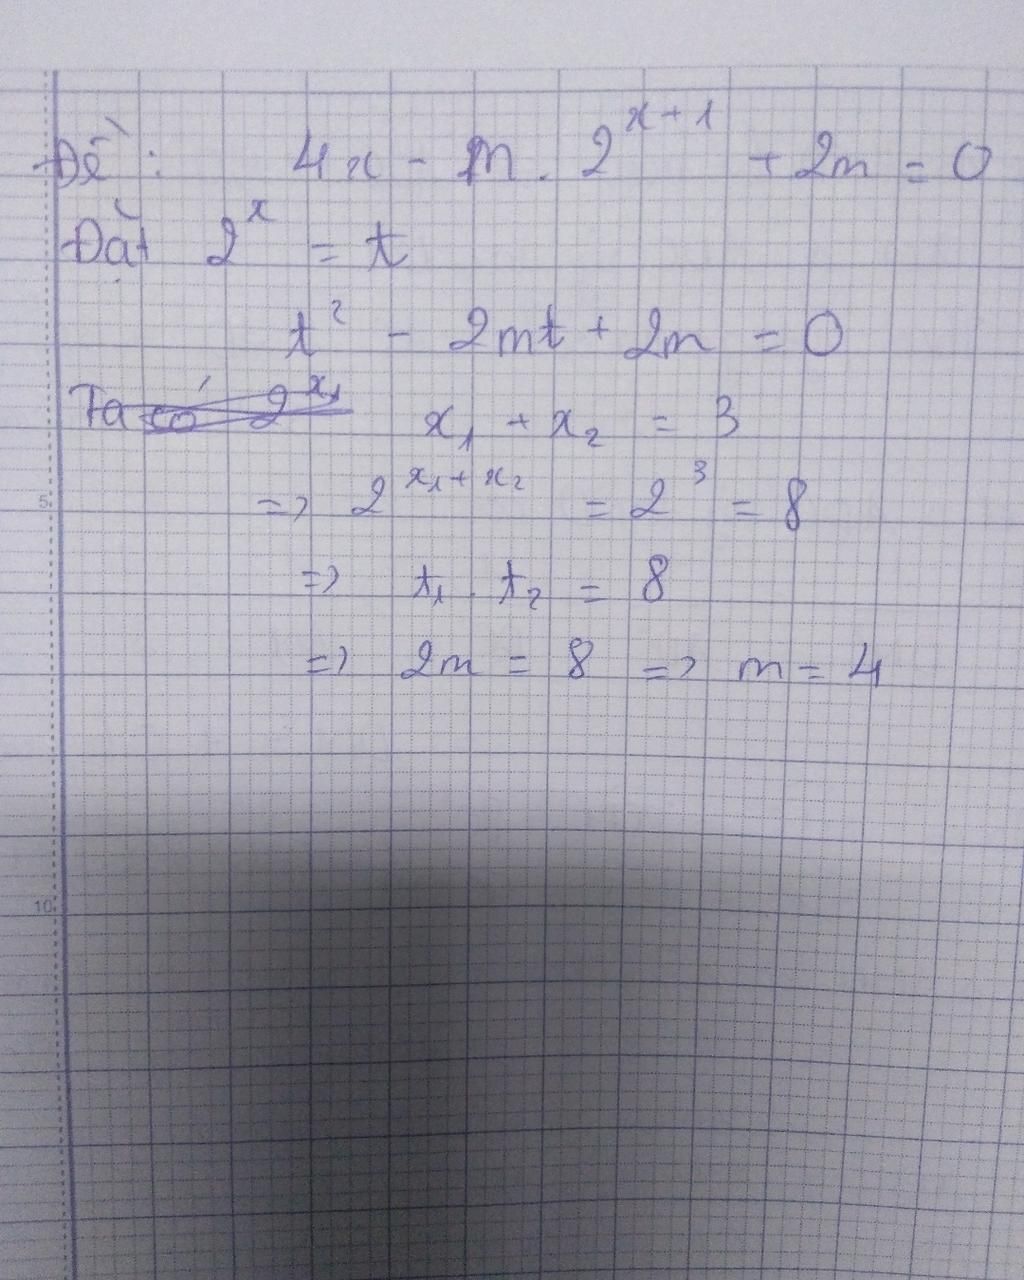 Đề: 4x - m. 2^{x+1} + 2m = 0
Đặt 2^x = t
t² - 2mt + 2m = 0
Ta ~~có 2^{x₁}~~ x₁ + x₂ = 3
=> 2^{x₁+x₂} = 2³ = 8
=> t₁ . t₂ = 8
=> 2m = 8 => m = 4
5
10